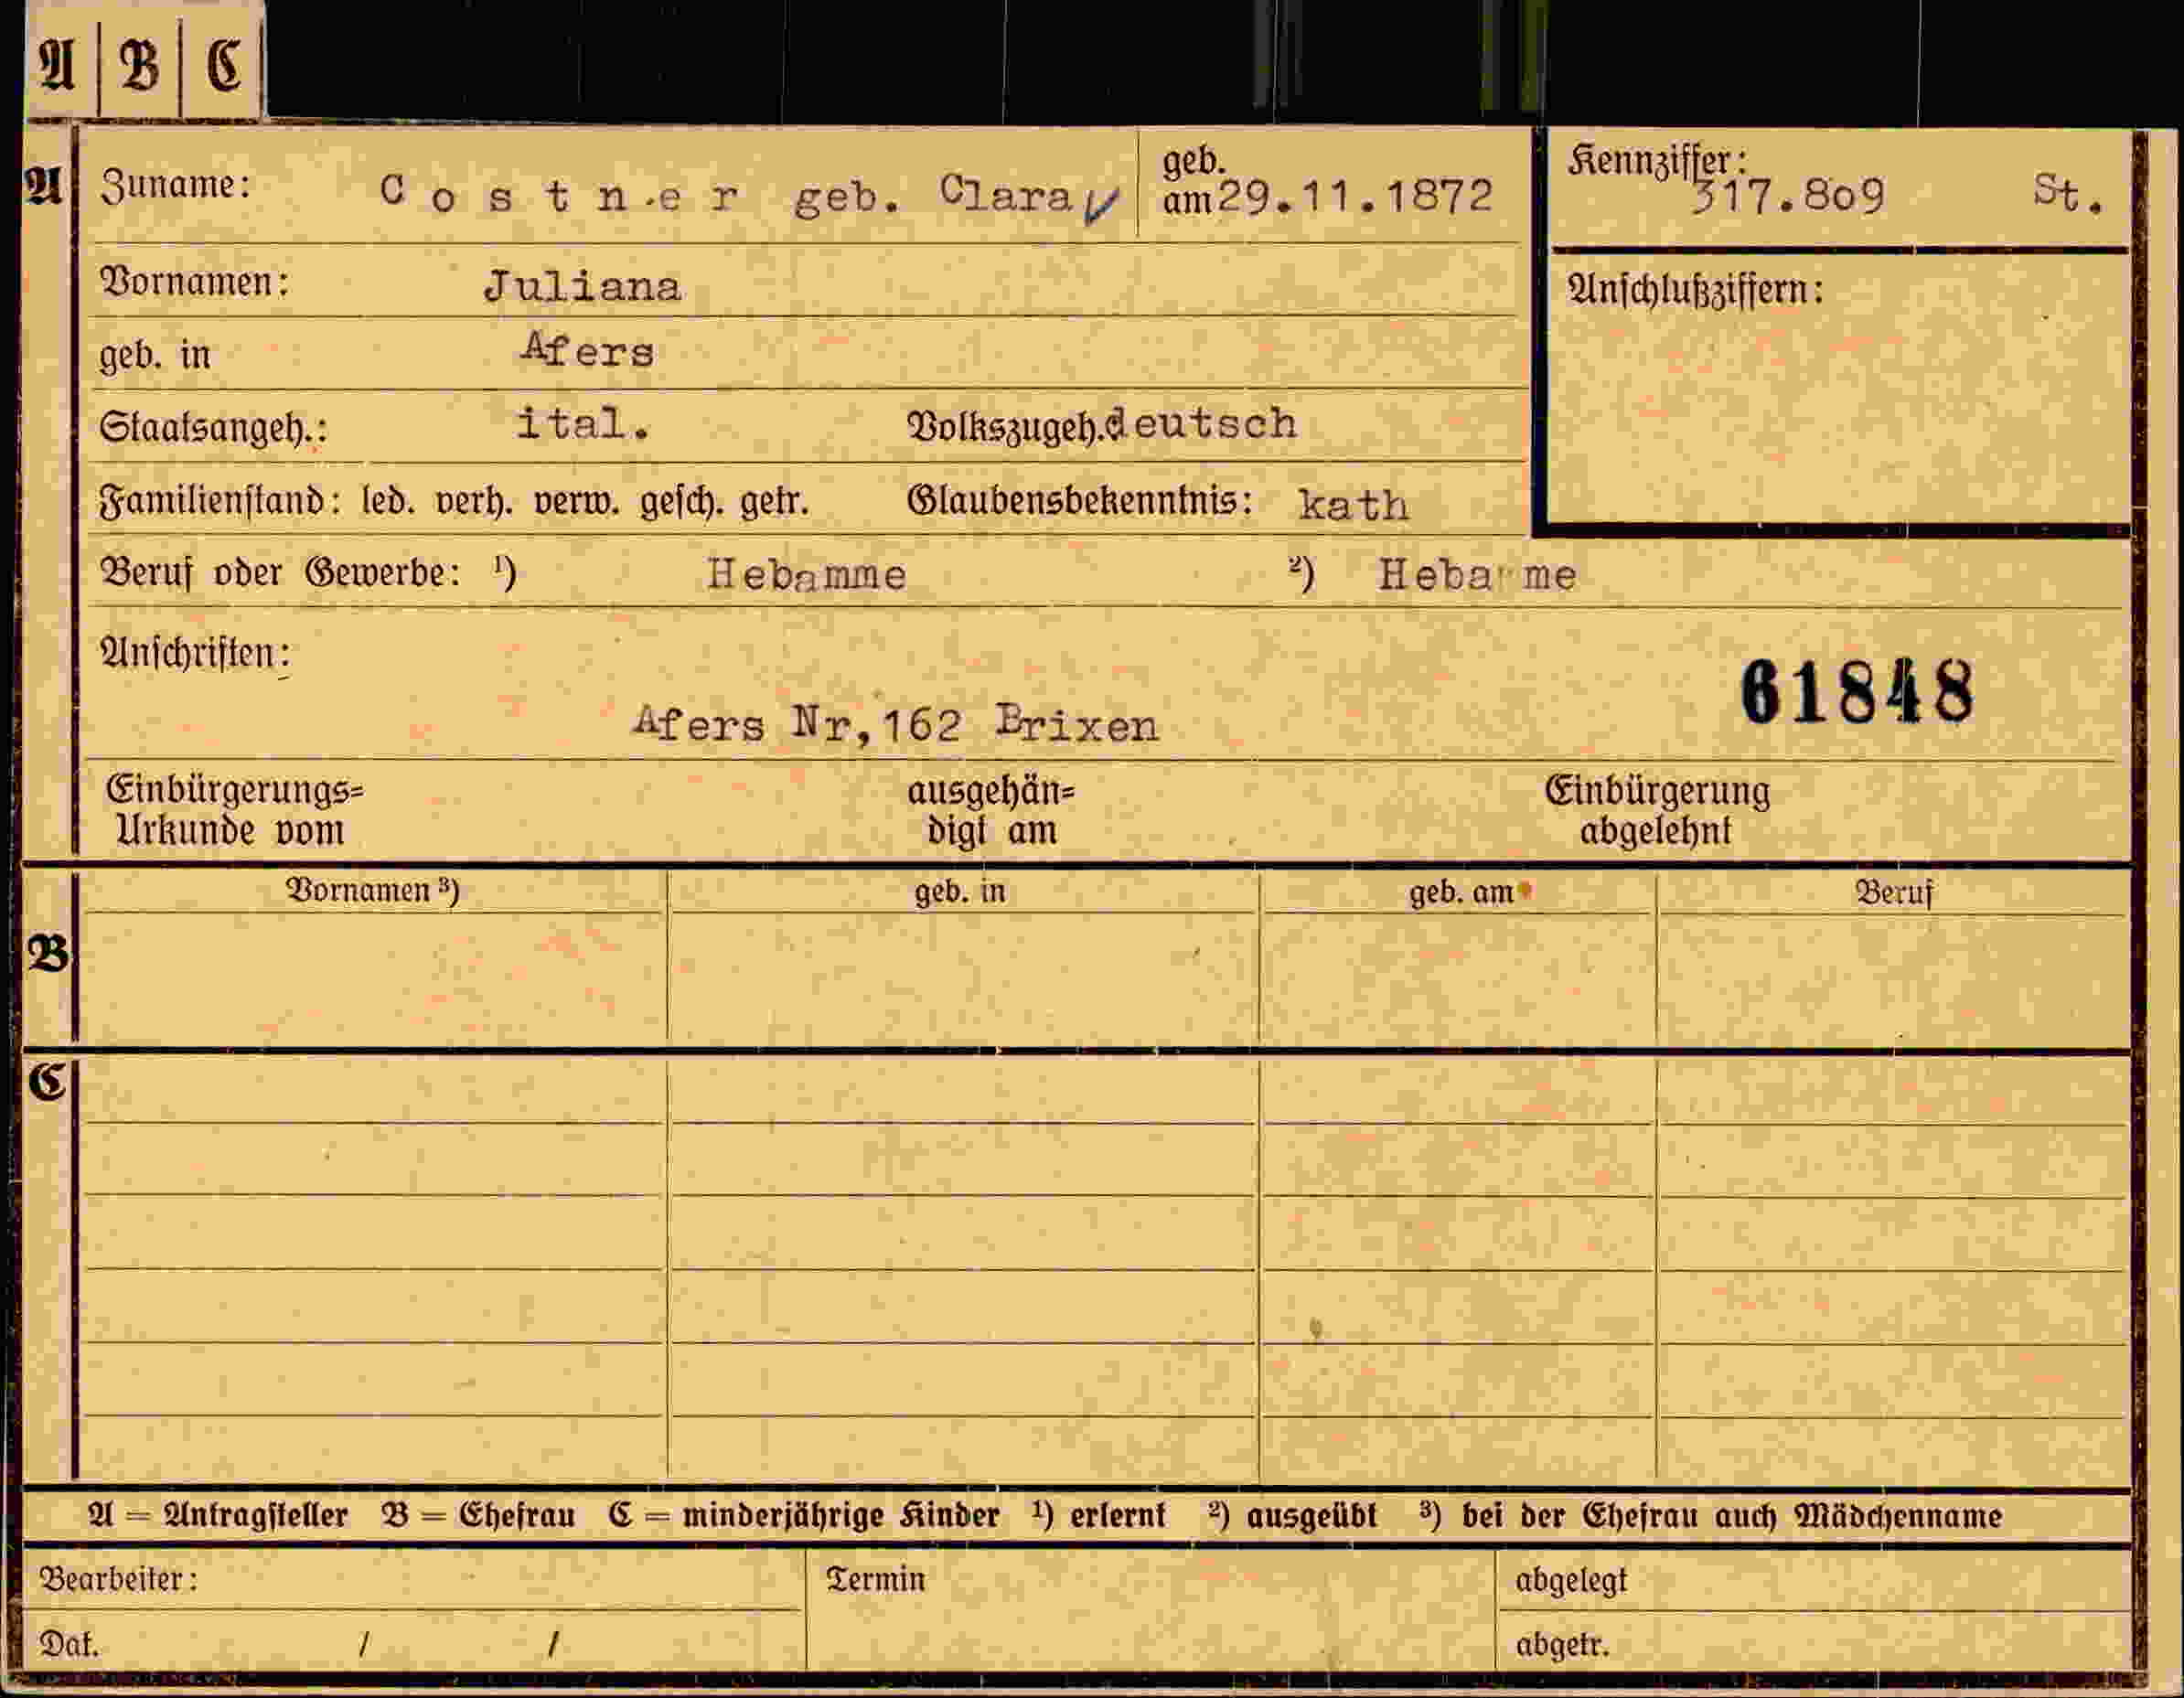 A | B | C
A Zuname: Costner geb. Clara geb. am 29.11.1872 Kennziffer: 317.809 St.
Vornamen: Juliana Anschlußziffern:
geb. in Afers
Staatsangeh.: ital. Volkszugeh. deutsch
Familienstand: led. verh. verw. gesch. getr. Glaubensbekenntnis: kath
Beruf oder Gewerbe: ¹) Hebamme ²) Heba me
Anschriften:
61848
Afers Nr,162 Brixen
Einbürgerungs= ausgehän= Einbürgerung
Urkunde vom digt am abgelehnt
Vornamen ³) geb. in geb. am Beruf
B
C
A = Antragsteller B = Ehefrau C = minderjährige Kinder ¹) erlernt ²) ausgeübt ³) bei der Ehefrau auch Mädchenname
Bearbeiter: Termin abgelegt
Dat. / / abgetr.